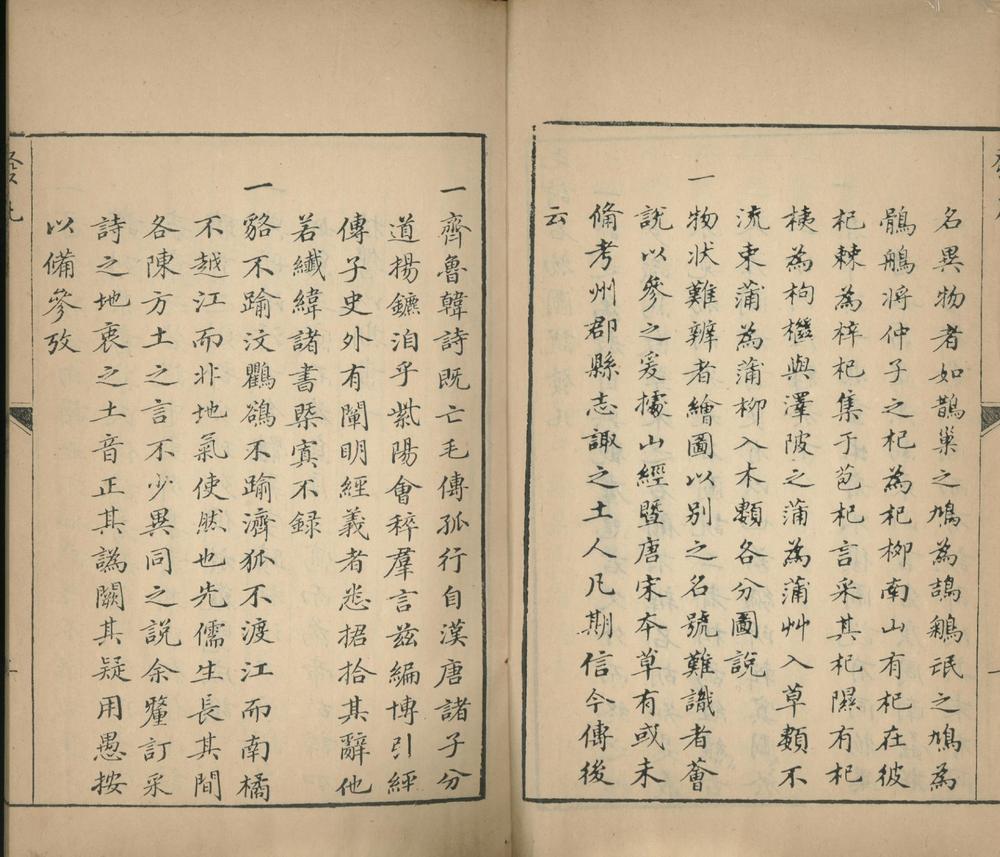 名異物者如鵲巢之鳩為鵠鶪氓之鳩為
鶻鵃將仲子之杞為杞柳南山有杞在彼
杞棘為梓杞集于苞杞言采其杞隰有杞
桋為枸檵與澤陂之蒲為蒲艸入草類不
流束蒲為蒲柳入木類各分圖說
一物狀難辨者繪圖以別之名號難識者薈
說以參之爰據山經暨唐宋本草有或未
備考州郡縣志諏之土人凡期信今傳後
云
一齊魯韓詩既亡毛傳孤行自漢唐諸子分
道揚鑣洎乎紫陽會稡羣言茲編博引經
傳子史外有闡明經義者悉捃拾其辭他
若纎緯諸書槩寘不録
一貉不踰汶鸜鵒不踰濟狐不渡江而南橘
不越江而北地氣使然也先儒生長其間
各陳方土之言不少異同之說余釐訂采
詩之地衷之土音正其譌闕其疑用愚按
以備參攷
發凡